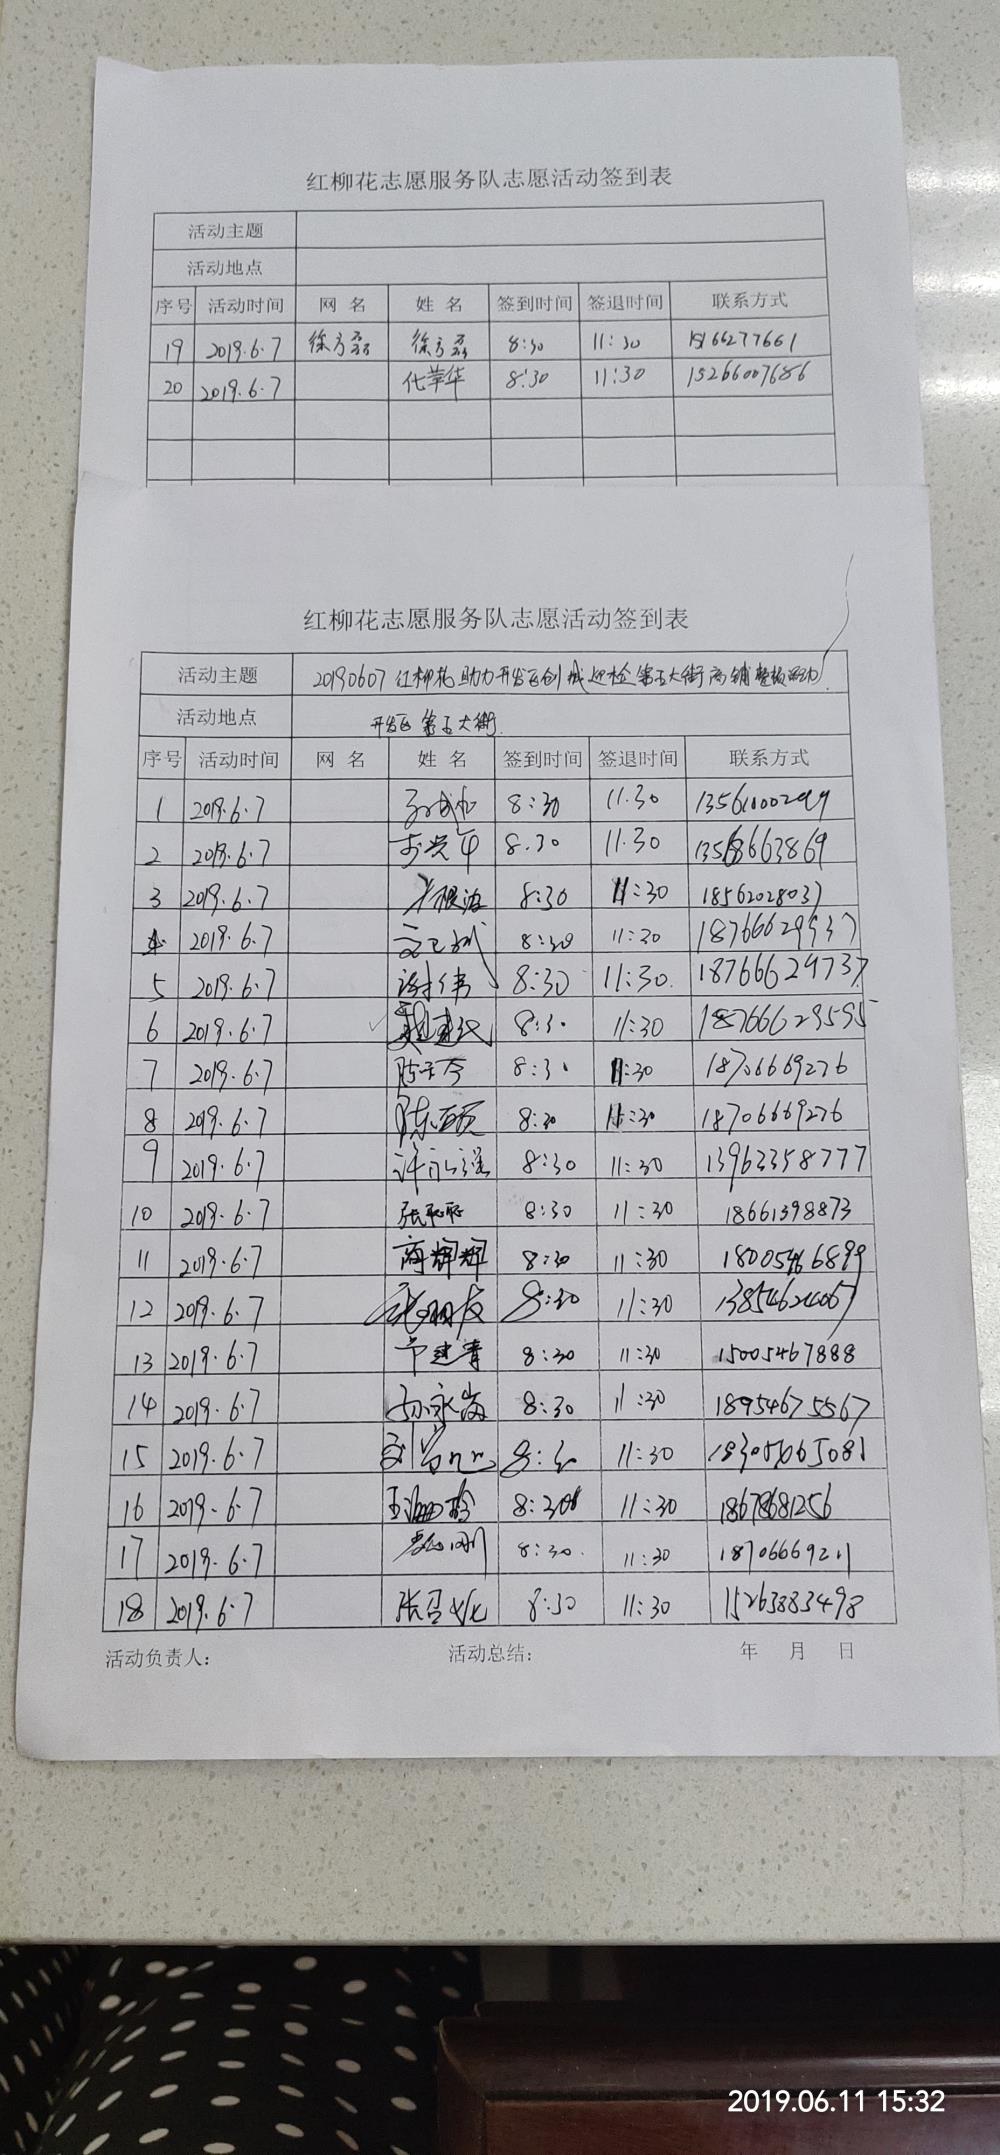 红柳花志愿服务队志愿活动签到表
活动主题
活动地点
序号 活动时间 网 名 姓 名 签到时间 签退时间 联系方式
19 2019.6.7 徐方磊 徐方磊 8:30 11:30 15166277661
20 2019.6.7 化苹华 8:30 11:30 15266007686
红柳花志愿服务队志愿活动签到表
活动主题 20190607红柳花助力开发区创城迎检第五大街商铺整顿活动
活动地点 开发区第五大街
序号 活动时间 网 名 姓 名 签到时间 签退时间 联系方式
1 2019.6.7 8:30 11.30
2 2019.6.7 8.30 11.30
3 2019.6.7 8:30 11:30 18562028037
2019.6.7 8:30 11:30 18766629937
5 2019.6.7 谢伟 8:30 11:30. 18766629737
6 2019.6.7 8:30 11:30 18766629595
7 2019.6.7 8:30 11:30 18706669276
8 2019.6.7 陈亚硕 8:30 11:30 18706669276
9 2019.6.7 8:30 11:30 13963358777
10 2019.6.7 8:30 11:30 18661398873
11 2019.6.7 商辉辉 8:30 11:30 18005466899
12 2019.6.7 8:30 11:30 13854624067
13 2019.6.7 8:30 11:30 15005467888
14 2019.6.7 孙永海 8:30 11:30 18954675567
15 2019.6.7 8:30 11:30
16 2019.6.7 8:30 11:30 18678681256
17 2019.6.7 8:30. 11:30 18706669211
18 2019.6.7 8:30 11:30 15263883498
活动负责人: 活动总结: 年 月 日
2019.06.11 15:32